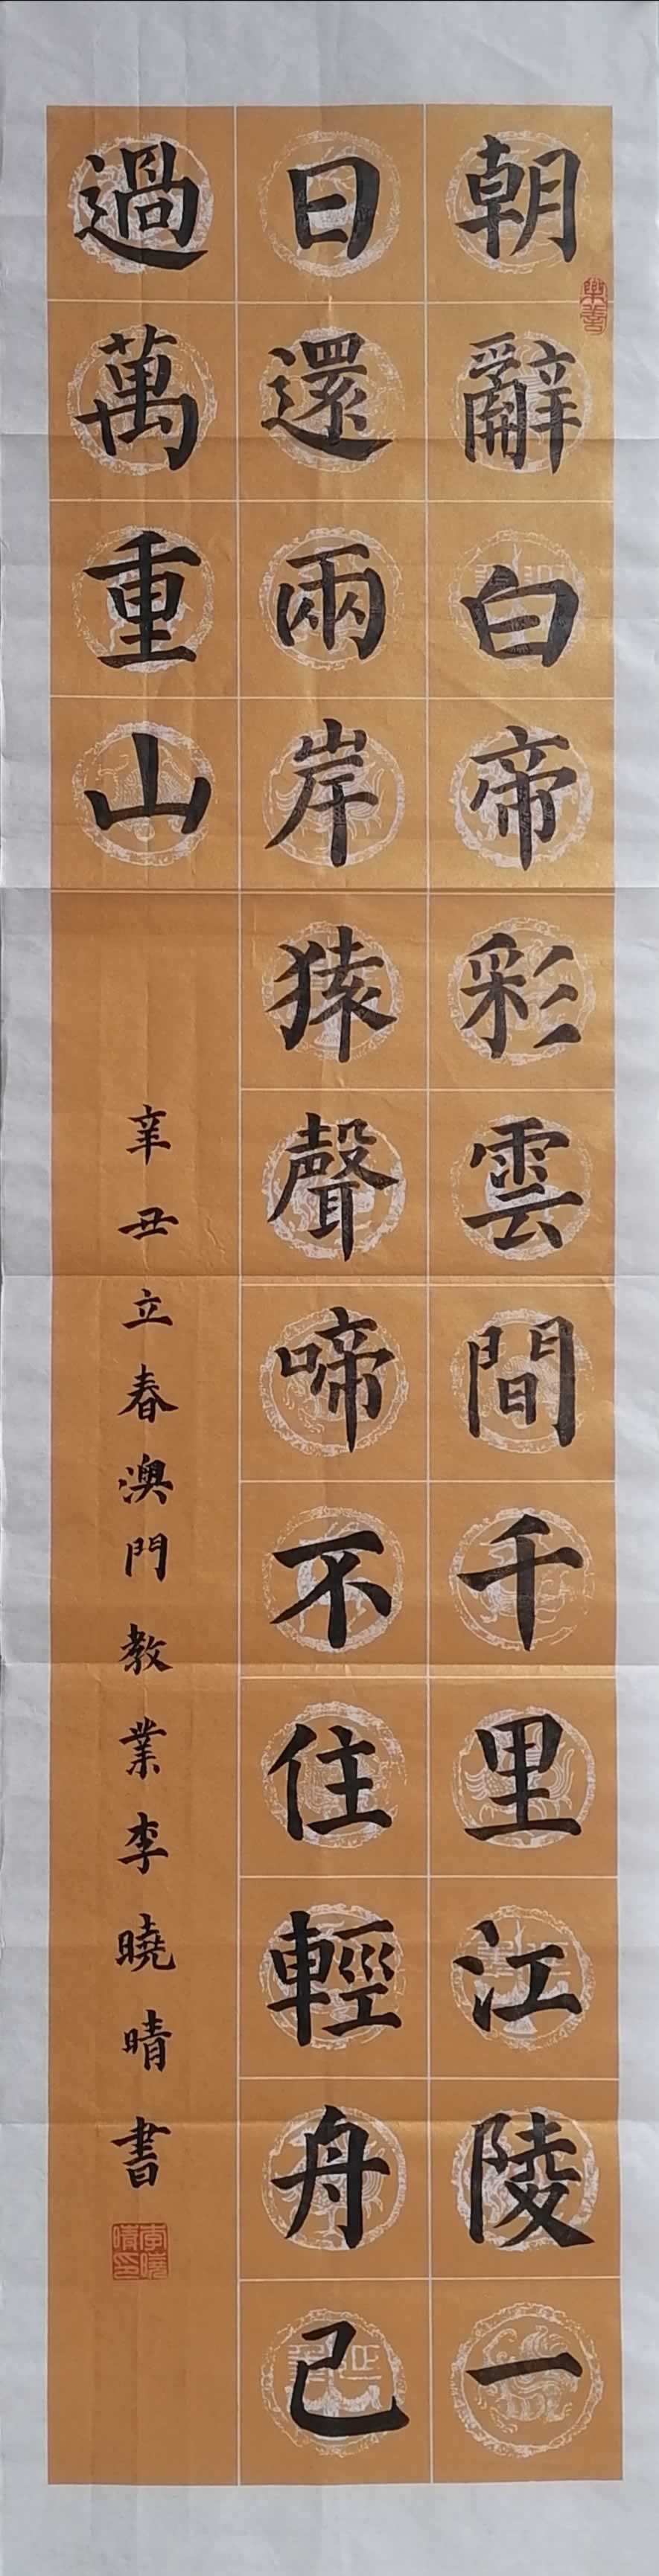 朝辭白帝彩雲間千里江陵一
樂善
日還兩岸猿聲啼不住輕舟已
過萬重山
辛丑立春澳門教業李曉晴書
李曉晴印